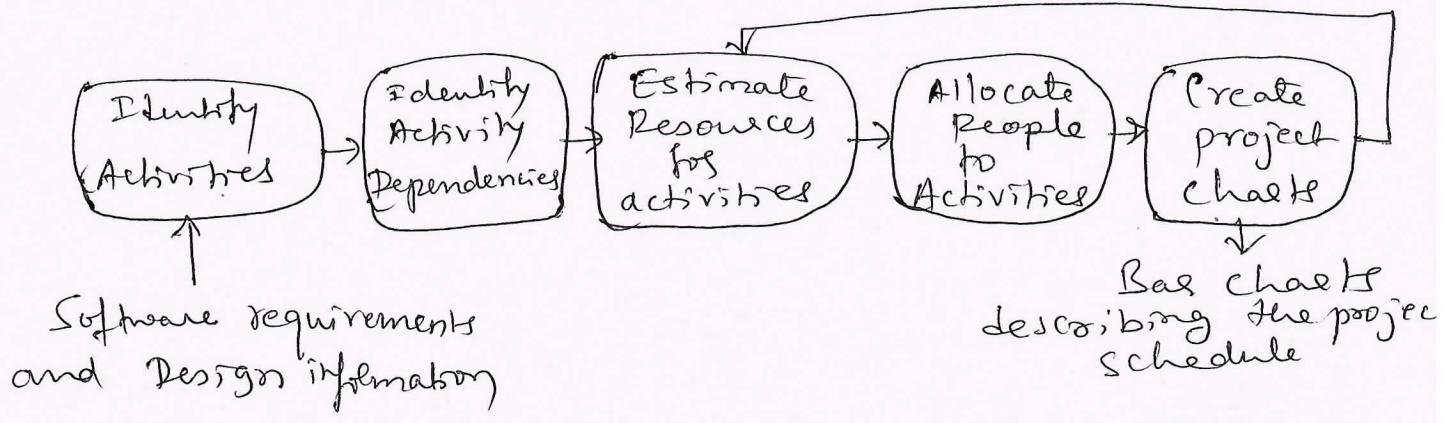 Identify
Activities
Identify
Activity
Dependencies
Estimate
Resources
for
activities
Allocate
People
to
Activities
Create
project
charts
Software requirements
and Design information
Bar charts
describing the projec
schedule